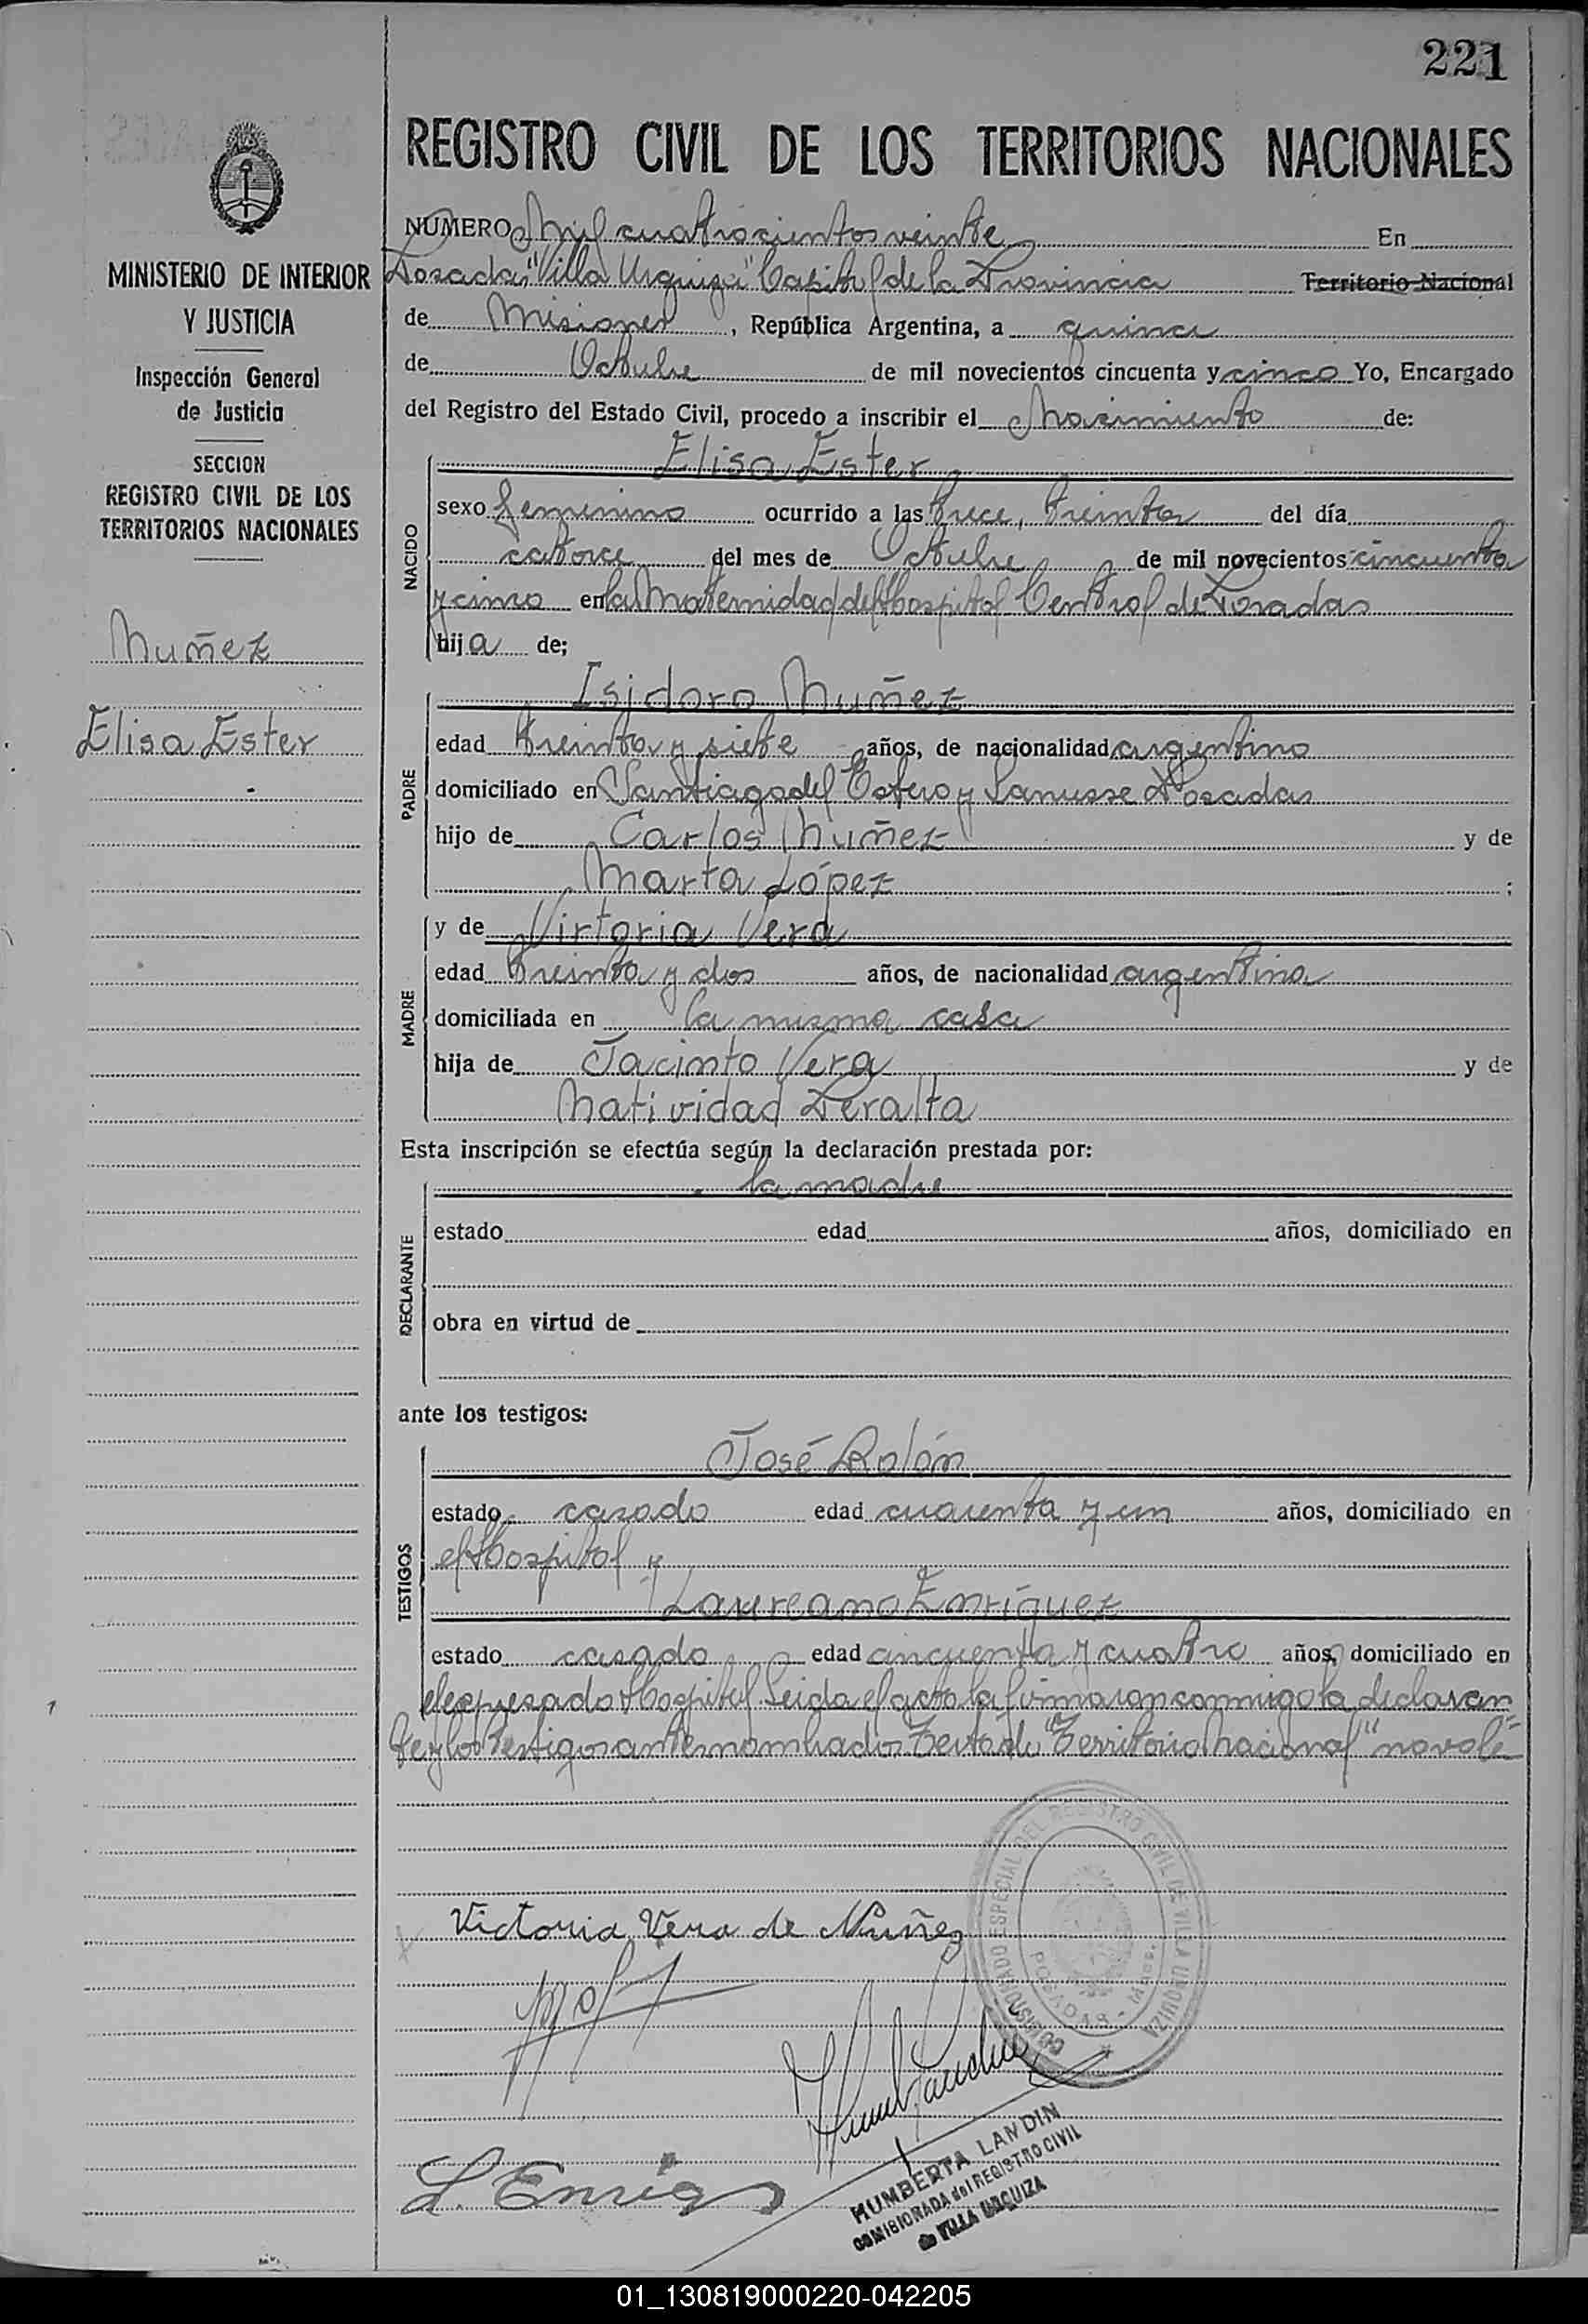 221
REGISTRO CIVIL DE LOS TERRITORIOS NACIONALES
MINISTERIO DE INTERIOR
Y JUSTICIA
Inspección General
de Justicia
SECCION
REGISTRO CIVIL DE LOS
TERRITORIOS NACIONALES
Muñez
Elisa Ester
NUMERO Mil cuatrocientos veinte En
Posadas "Villa Urquiza" Capital de la Provincia Territorio Nacional
de Misiones, República Argentina, a quince
de Octubre de mil novecientos cincuenta y cinco Yo, Encargado
del Registro del Estado Civil, procedo a inscribir el Nacimiento de:
NACIDO
Elisa Ester
sexo femenino ocurrido a las trece, treinta del día
catorce del mes de Octubre de mil novecientos cincuenta
y cinco en la Maternidad del Hospital Central de Posadas
hija de;
PADRE
Isidoro Muñez
edad treinta y siete años, de nacionalidad argentino
domiciliado en Santiago del Estero y Lanusse Posadas
hijo de Carlos Muñez y de
Marta López ;
MADRE
y de Virtoria Vera
edad treinta y dos años, de nacionalidad argentina
domiciliada en la misma casa
hija de Jacinto Vera y de
Natividad Peralta
Esta inscripción se efectúa según la declaración prestada por:
DECLARANTE
la madre
estado edad años, domiciliado en
obra en virtud de
ante los testigos:
TESTIGOS
José Rolón
estado casado edad cuarenta y un años, domiciliado en
el Hospital y
Laureano Enríquez
estado casado edad cincuenta y cuatro años, domiciliado en
el expresado Hospital. Leida el acta la firmaron conmigo la declaran
te y los testigos antes nombrados. Testado: "Territorio Nacional" no vale
Victoria Vera de Muñez
L. Enriq
COMISIONADO ESPECIAL DEL REGISTRO CIVIL DE VILLA URQUIZA
POSADAS - Misiones
HUMBERTA LANDIN
COMISIONADA del REGISTRO CIVIL
de VILLA URQUIZA
01_130819000220-042205